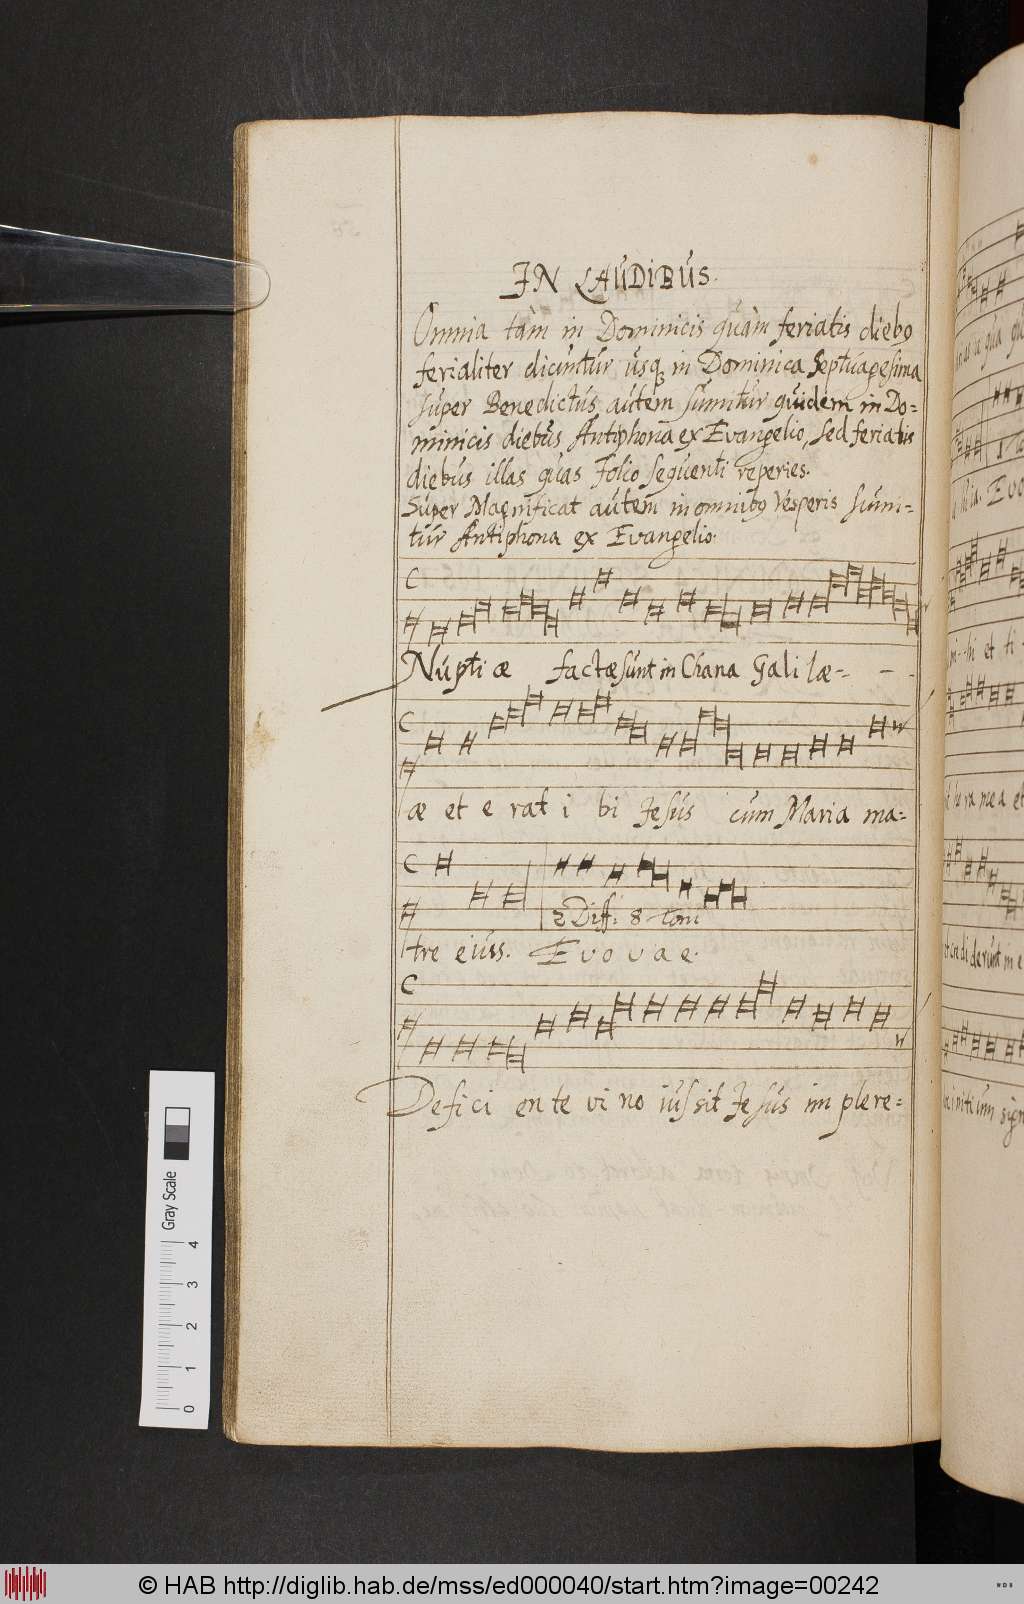 IN LAUDIBUS.
Omnia tàm in Dominicis quàm feriatis diebꝰ
ferialiter dicuntur usqꝫ in Dominica Septuagesima
super Benedictus autem sumitur quidem in Do=
minicis diebus Antiphona ex Evangelio, sed feriatis
diebus illas quas Folio sequenti reperies.
Super Magnificat autem in omnibꝰ Vesperis sumi=
tur Antiphona ex Evangelio.
C
Nupti æ factæ sunt in Chana Gali læ- - -
C
æ et e rat i bi Jesus cum Maria ma=
C
2 Diff: 8 Toni
tre eius. E v o v a e.
C
Defici en te vi no ius sit Je sus im ple re=
Gray Scale
0 1 2 3 4
© HAB http://diglib.hab.de/mss/ed000040/start.htm?image=00242